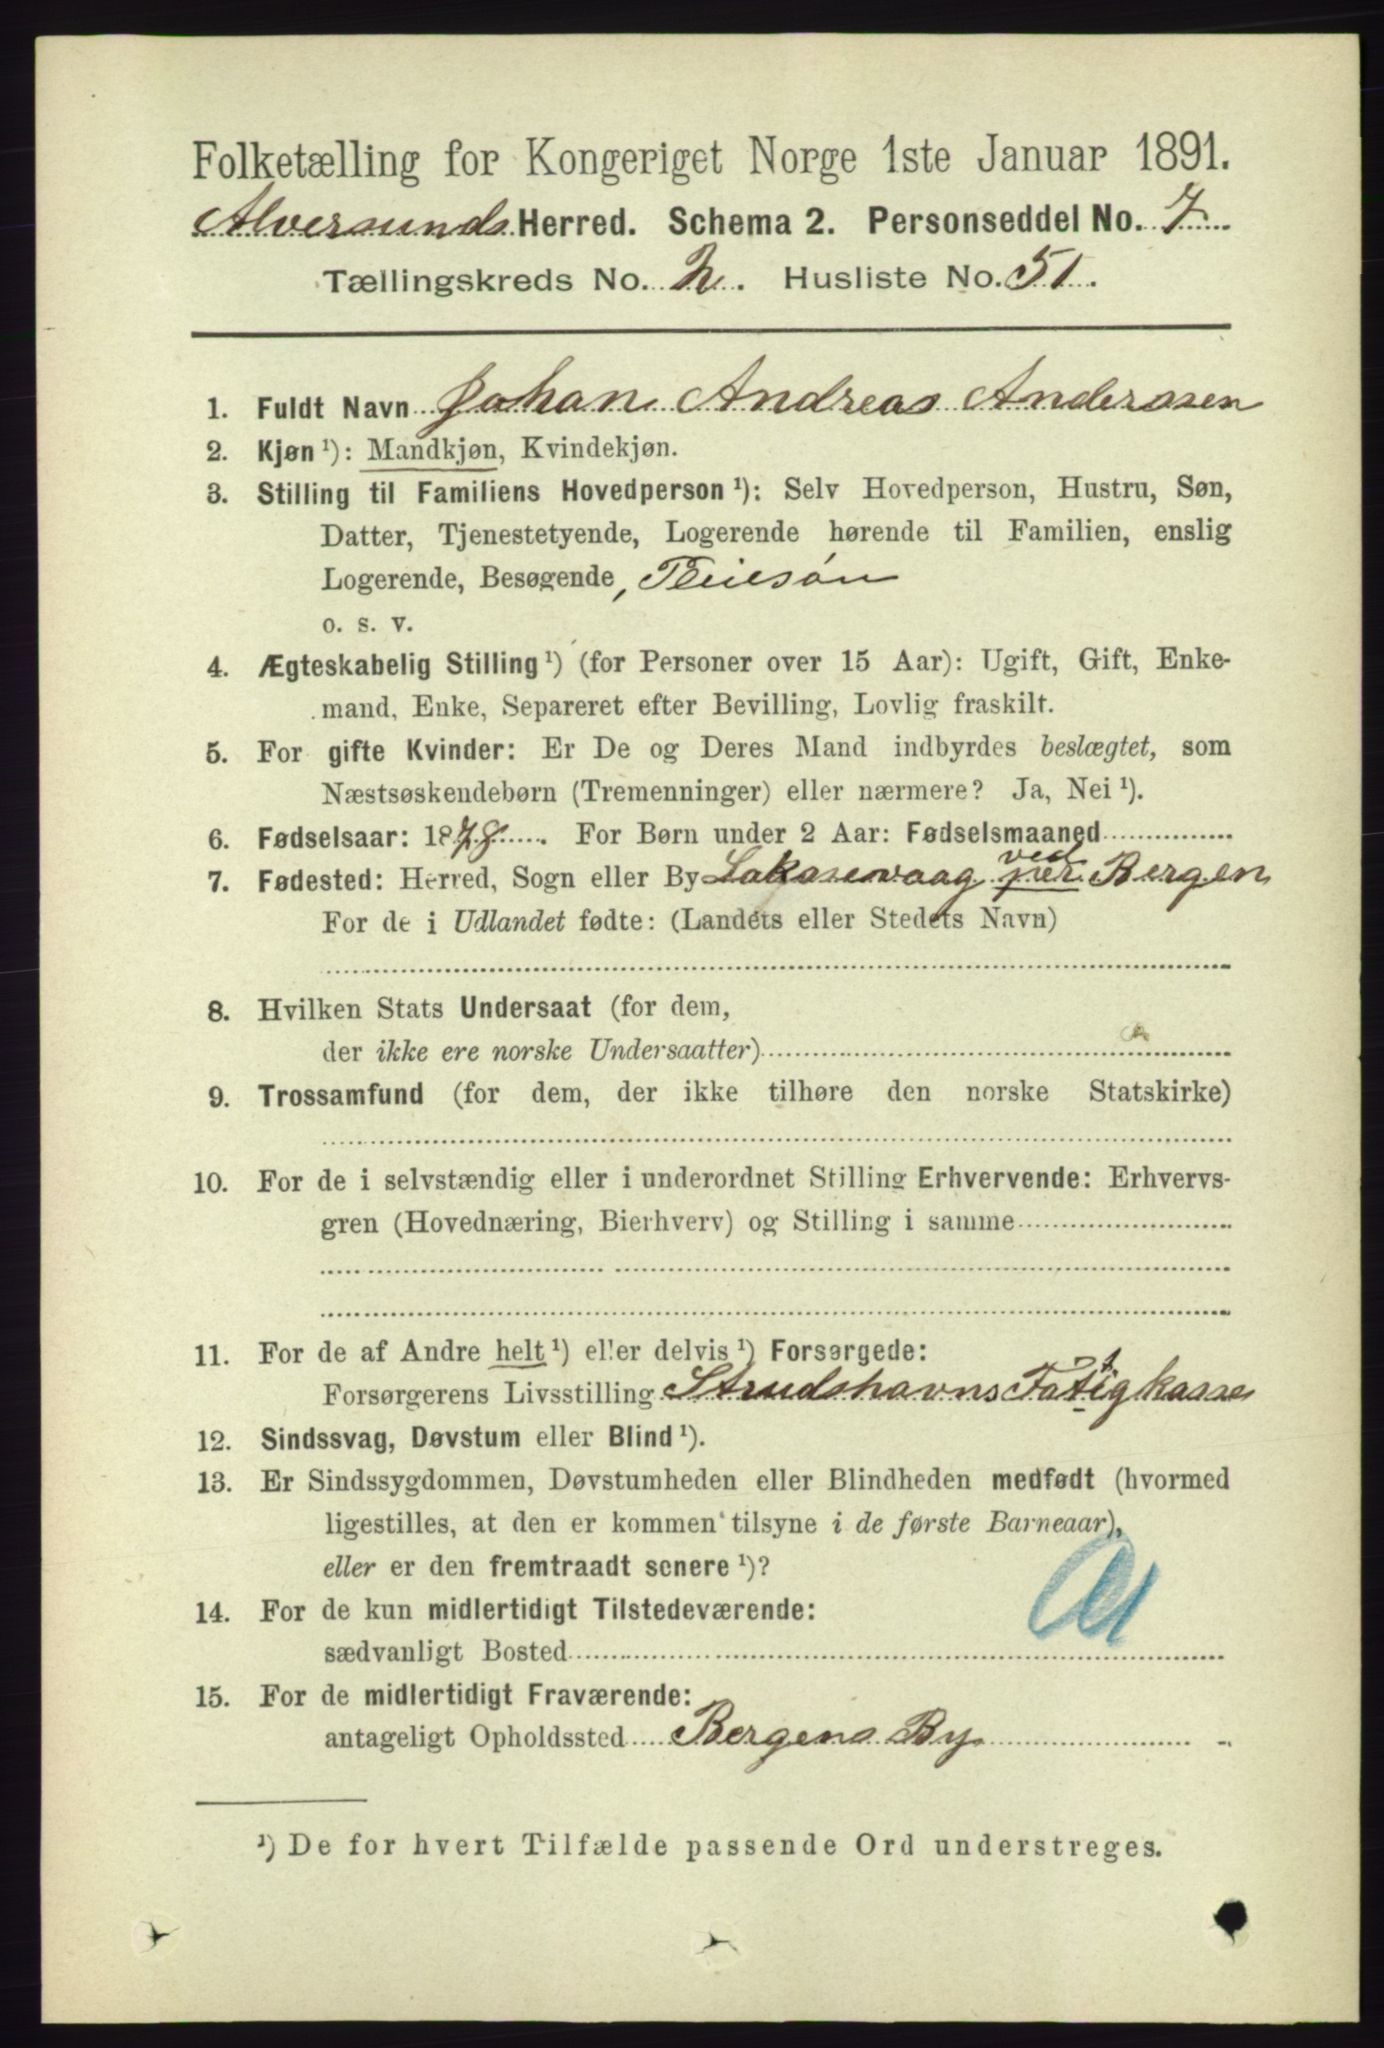 Folketælling for Kongeriget Norge 1ste Januar 1891.
Alversunds Herred. Schema 2. Personseddel No. 7
Tællingskreds No. 2. Husliste No. 51.
1. Fuldt Navn Johan Andreas Anderasen
2. Kjøn ¹): Mandkjøn, Kvindekjøn.
3. Stilling til Familiens Hovedperson ¹): Selv Hovedperson, Hustru, Søn,
Datter, Tjenestetyende, Logerende hørende til Familien, enslig
Logerende, Besøgende, Pleiesøn
o. s. v.
4. Ægteskabelig Stilling ¹) (for Personer over 15 Aar): Ugift, Gift, Enke-
mand, Enke, Separeret efter Bevilling, Lovlig fraskilt.
5. For gifte Kvinder: Er De og Deres Mand indbyrdes beslægtet, som
Næstsøskendebørn (Tremenninger) eller nærmere? Ja, Nei ¹).
6. Fødselsaar: 1878. For Børn under 2 Aar: Fødselsmaaned
ved
7. Fødested: Herred, Sogn eller By Laksevaag per Bergen
For de i Udlandet fødte: (Landets eller Stedets Navn)
8. Hvilken Stats Undersaat (for dem,
der ikke ere norske Undersaatter)
9. Trossamfund (for dem, der ikke tilhøre den norske Statskirke)
10. For de i selvstændig eller i underordnet Stilling Erhvervende: Erhvervs-
gren (Hovednæring, Bierhverv) og Stilling i samme
11. For de af Andre helt ¹) eller delvis ¹) Forsørgede:
Forsørgerens Livsstilling Strudshavns Fattigkasse
12. Sindssvag, Døvstum eller Blind ¹).
13. Er Sindssygdommen, Døvstumheden eller Blindheden medfødt (hvormed
ligestilles, at den er kommen tilsyne i de første Barneaar),
eller er den fremtraadt senere ¹)?
14. For de kun midlertidigt Tilstedeværende:
sædvanligt Bosted
15. For de midlertidigt Fraværende:
antageligt Opholdssted Bergens By
¹) De for hvert Tilfælde passende Ord understreges.